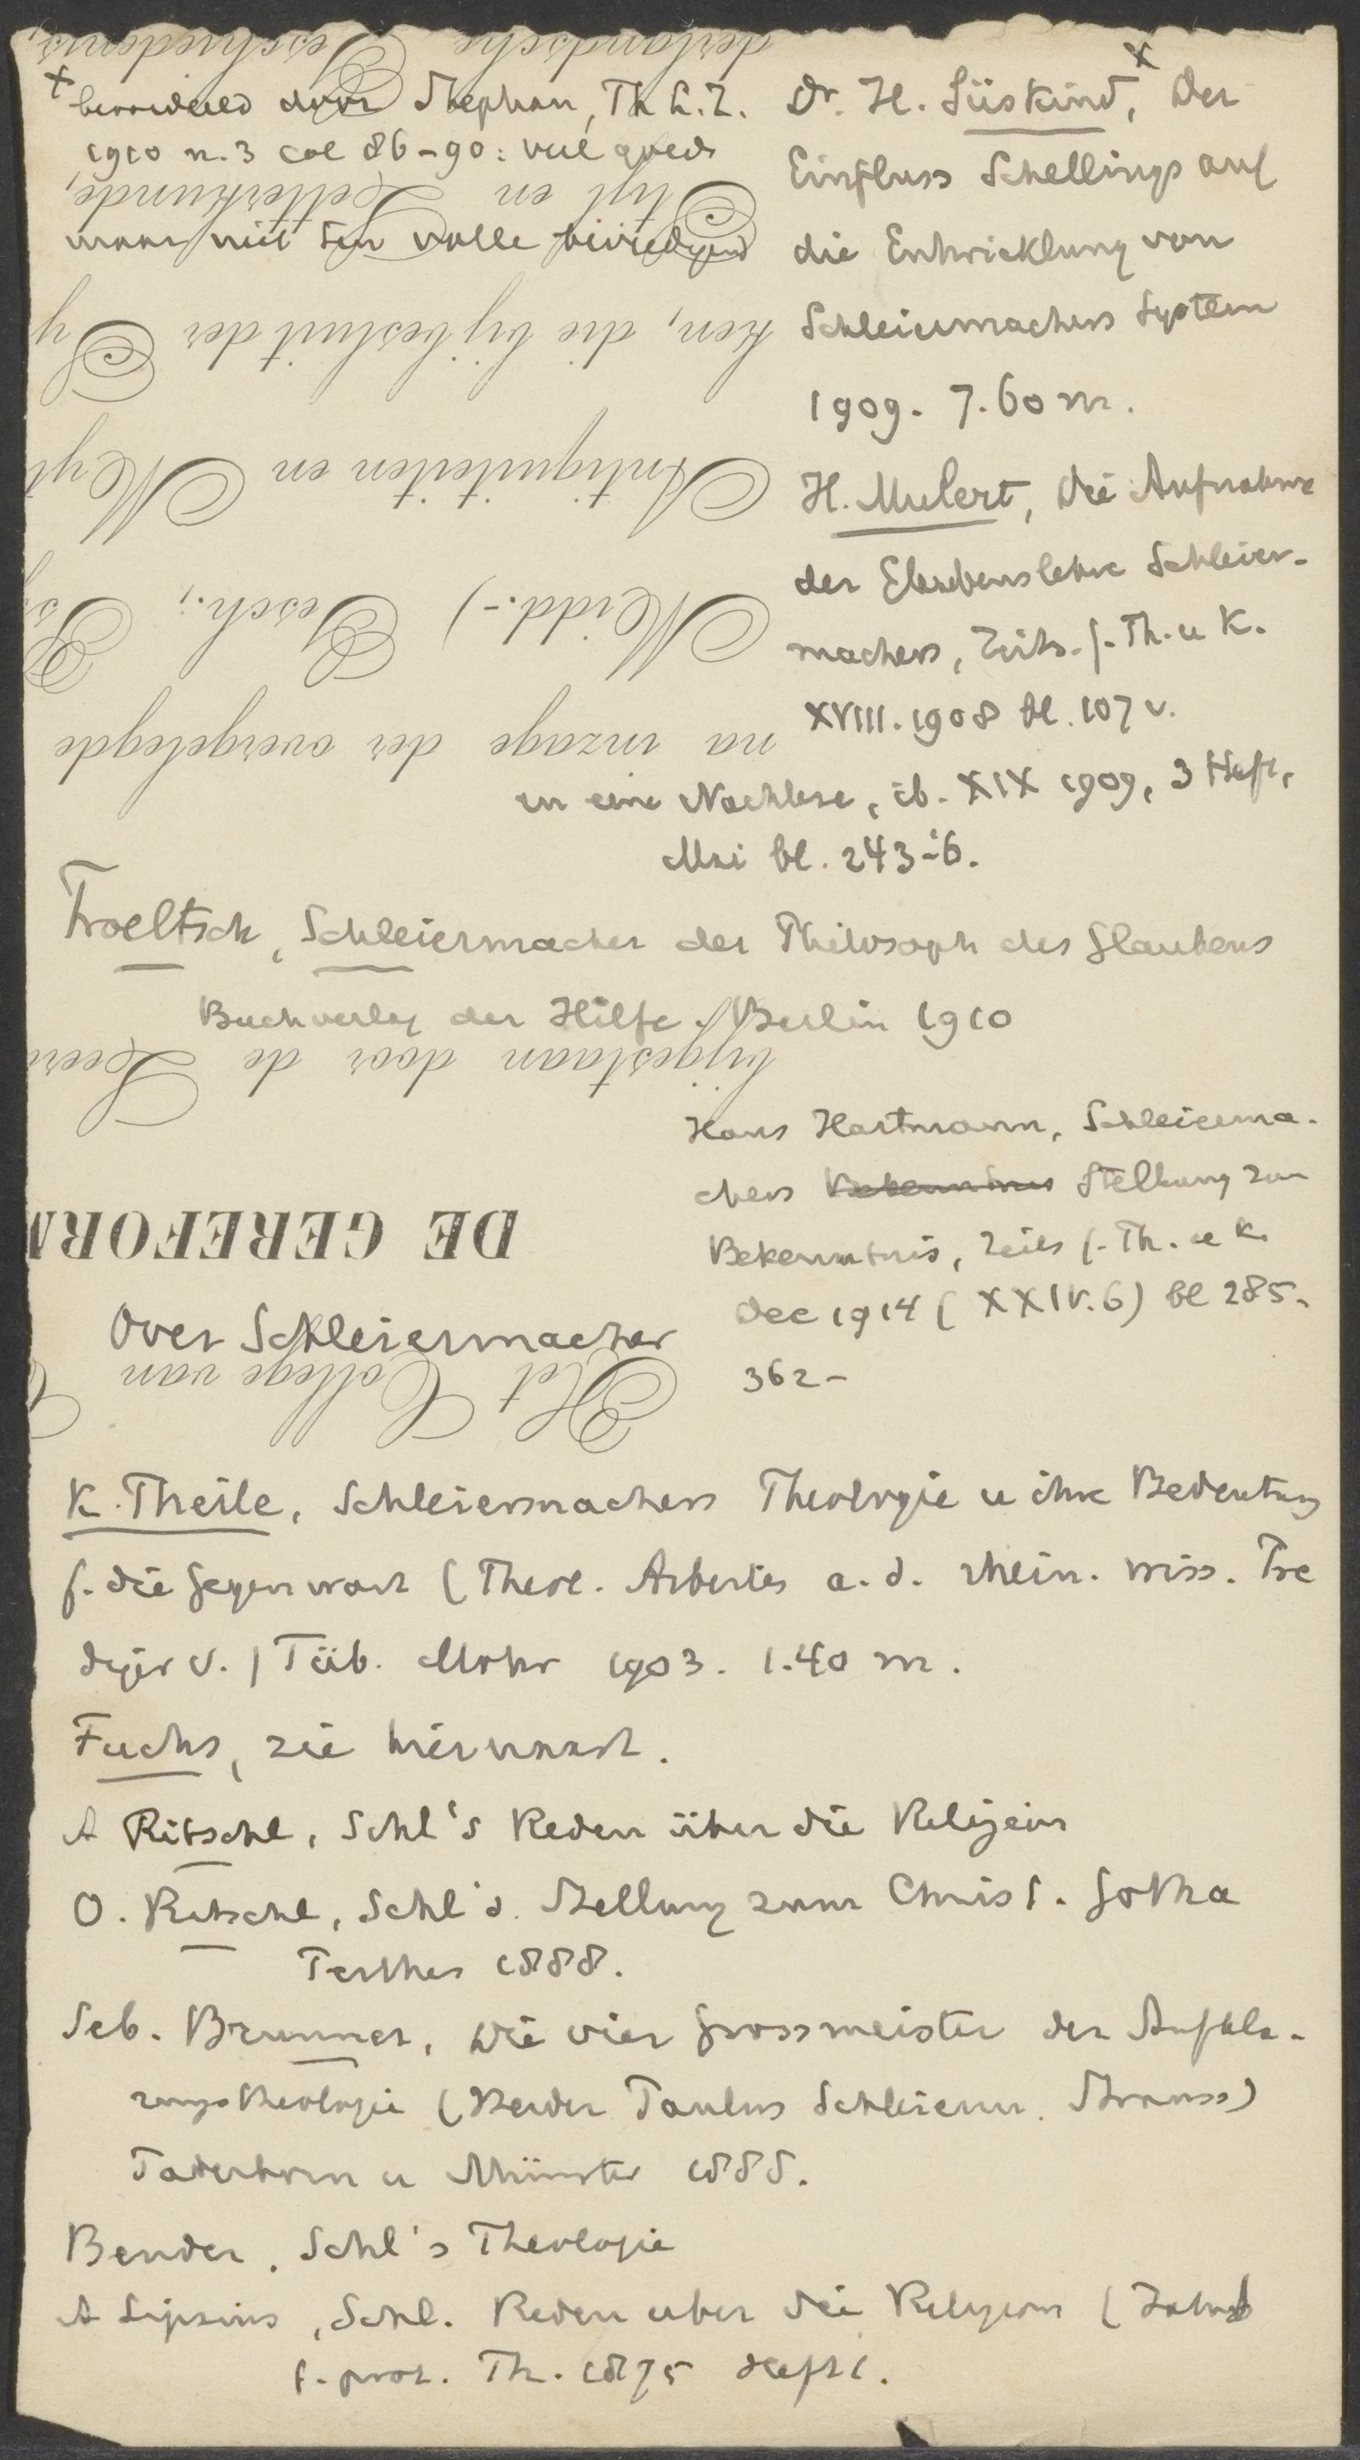 × beoordeeld door Stephan, Th L.Z.
1910 n. 3 col 86-90: veel goeds
maar niet ten volle bevredigend
Dr. H. Süskind,× Der
Einfluss Schellings auf
die Entwicklung von
Schleiermachers System
1909. 7.60 m.
H. Mulert, Die Aufnahme
der Glaubenslehre Schleier-
machers, Zeits. f. Th. u K.
XVIII. 1908 bl. 107 v.
en eine Nachlese, ib. XIX 1909, 3 Heft,
Mai bl. 243-6.
Troeltsch, Schleiermacher der Philosoph des Glaubens
Buchverlag der Hilfe. Berlin 1910
Hans Hartmann, Schleierma-
chers Bekenntnis Stellung zum
Bekenntnis, Zeits f. Th. u K.
Dec 1914 (XXIV. 6) bl 285-
362-
Over Schleiermacher
K. Theile, Schleiermachers Theologie u ihre Bedeutung
f. die Gegenwart (Theol. Arbeiten a. d. rhein. wiss. Pre
diger v.) Tüb. Mohr 1903. 1.40 m.
Fuchs, zie hiernaast.
A Ritschl, Schl's Reden über die Religion
O. Ritschl, Schl's Stellung zum Christ. Gotha
Perthes 1888.
Seb. Brunner, Die vier Grossmeister der Aufklä-
rungstheologie (Herder Paulus Schleierm. Strauss)
Paderborn u Münster 1888.
Bender, Schl's Theologie
A Lipsius, Schl. Reden uber die Religion (Jahrb
f. prot. Th. 1875 Heft 1.
Het College van
DE GEREFORM
bijgestaan door de Heere
na inzage der overgelegde
Midd.-) Gesch.;
Antiquiteiten en Myt
ken, die bij besluit der
Stijl en Letterkunde,
derlandsche Geschiedenis,